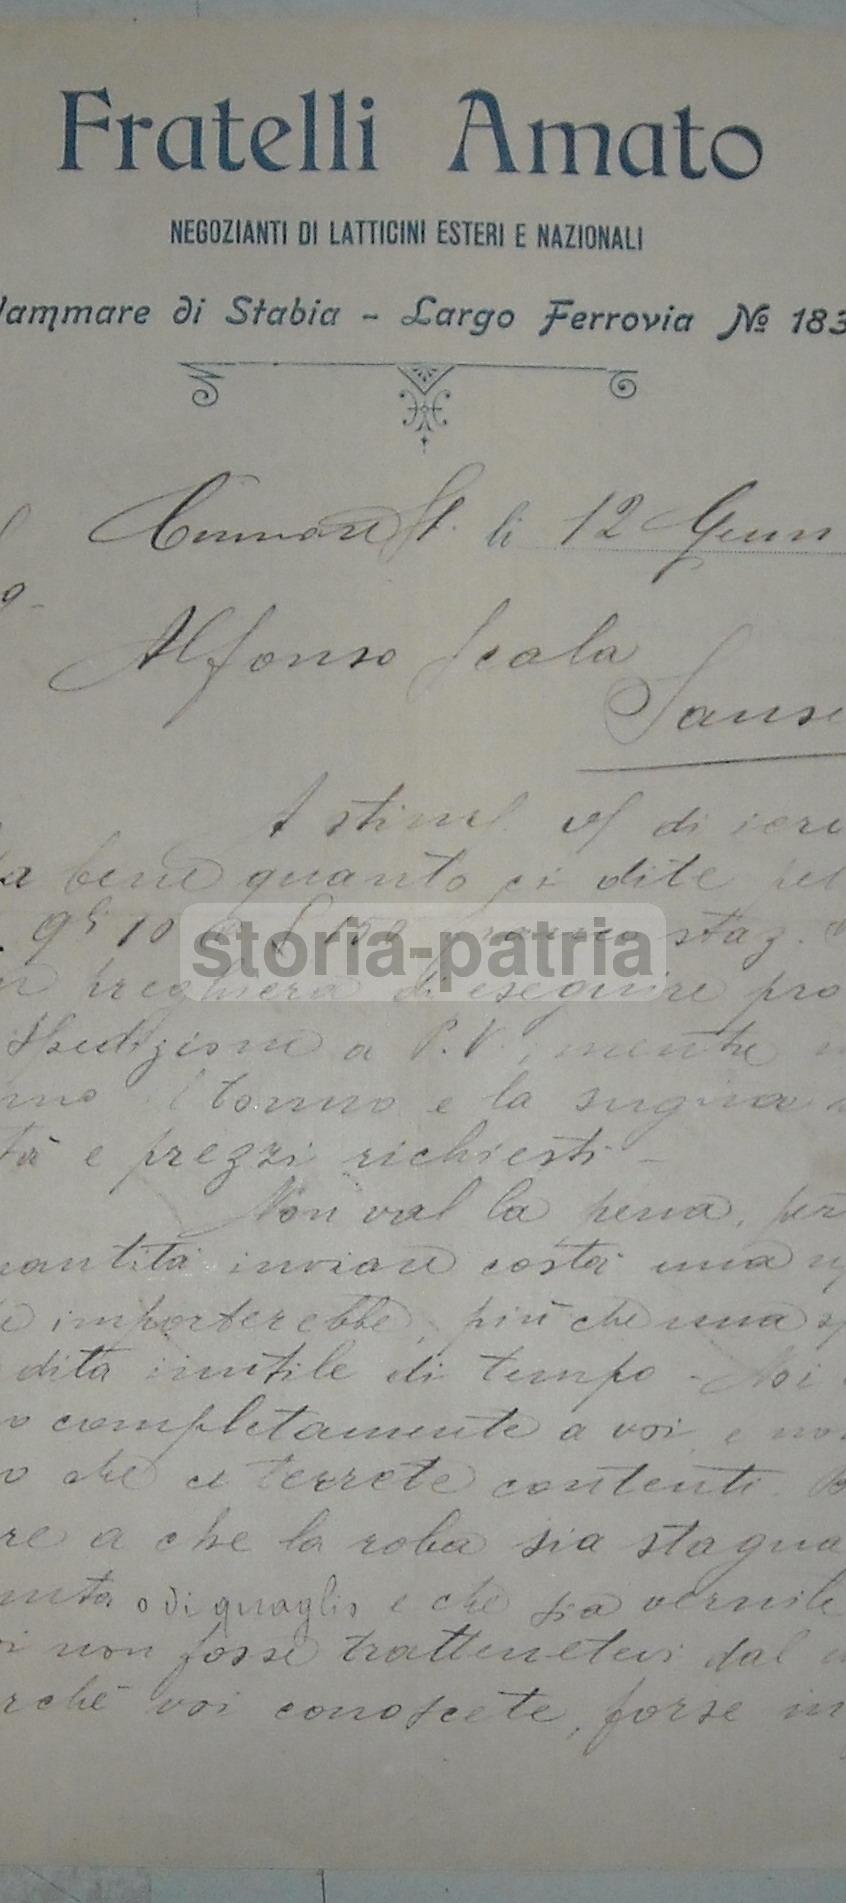 Fratelli Amato
NEGOZIANTI DI LATTICINI ESTERI E NAZIONALI
lammare di Stabia - Largo Ferrovia Nº 183
St. li 12 Genn
Alfonso Scala
Sanse
A stim. di ieri
bene quanto ci dite per
q.li 10 staz.
storia-patria
preghiera di eseguire pro
spedizione a P.V., mentre
tonno e la sugna
tà e prezzi richiesti -
Non val la pena, per
uantità inviare costà una
importerebbe, più che una
dita inutile di tempo - Noi
o completamente a voi e non
o che ci terrete contenti.
re a che la roba sia stagna
o di quaglio e che sia vernile
non fosse trattenetevi dal
rchè voi conoscete, forse in